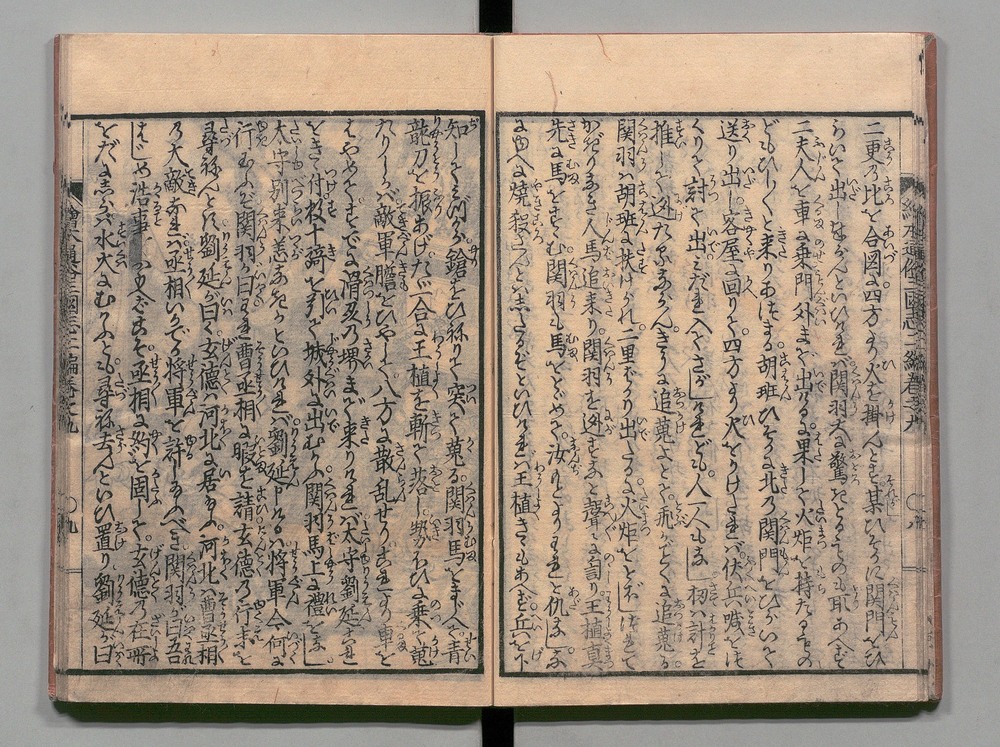 繪本通俗三國志二編巻之九 〇八
二更の比を合図に四方より火を掛んとす某ひそかに関門をひ
らいて出しまゐらせんといひければ関羽大に驚きとるものも取あへず
二夫人を車に乗門外まで出けるに果して火炬を持たるもの
どもひし〳〵と来りあつまる胡班ひそかに北の関門をひらいて
送り出し客屋に回りて四方より火をかけたれば伏兵喊をつ
くりて討て出みだれ入てさがしけれども人一人もなし扨は計を
推して迯たるならんいそぎ追蒐よとて飛がごとくに追蒐る
関羽は胡班に扶けられ二里ばかり出たるに火炬をとぼしつれて
かぎりなき人馬追来り関羽を迯すなと聲々に罵り王植真
先に馬をすゝむ関羽も馬をとゞめて汝われと仇なし
なにゆへに焼殺さんとはしたるぞといひければ王植きゝもあへず兵を下
知して 鎗をひねりて突て蒐る関羽馬をまじへて青
龍刀を振あげたゞ一合に王植を斬て落し勢ひに乗て蒐
たりしが敵軍膽をひやして八方に散乱せりこれより車を
はやめてすでに滑 の堺まで来りければ太守劉延これ
をきゝ付数十騎を引て城外に出むかふ関羽馬上に禮をなし
太守別来恙なきかといひければ劉延申けるは将軍今何に
行むふぞ関羽が曰 曹丞相に暇を請玄徳の行末を
尋ねんとす劉延が曰く玄徳は河北に居給ふ河北は曹丞相
の大敵なれば丞相いかでか将軍を許し給ふべき関羽が曰吾
はじめ浩事 丞相に約を固して玄徳の在所
をだにしらば水火 なりとも尋ね去んといひ置り劉延が曰
繪本通俗三國志二編巻之九 〇九